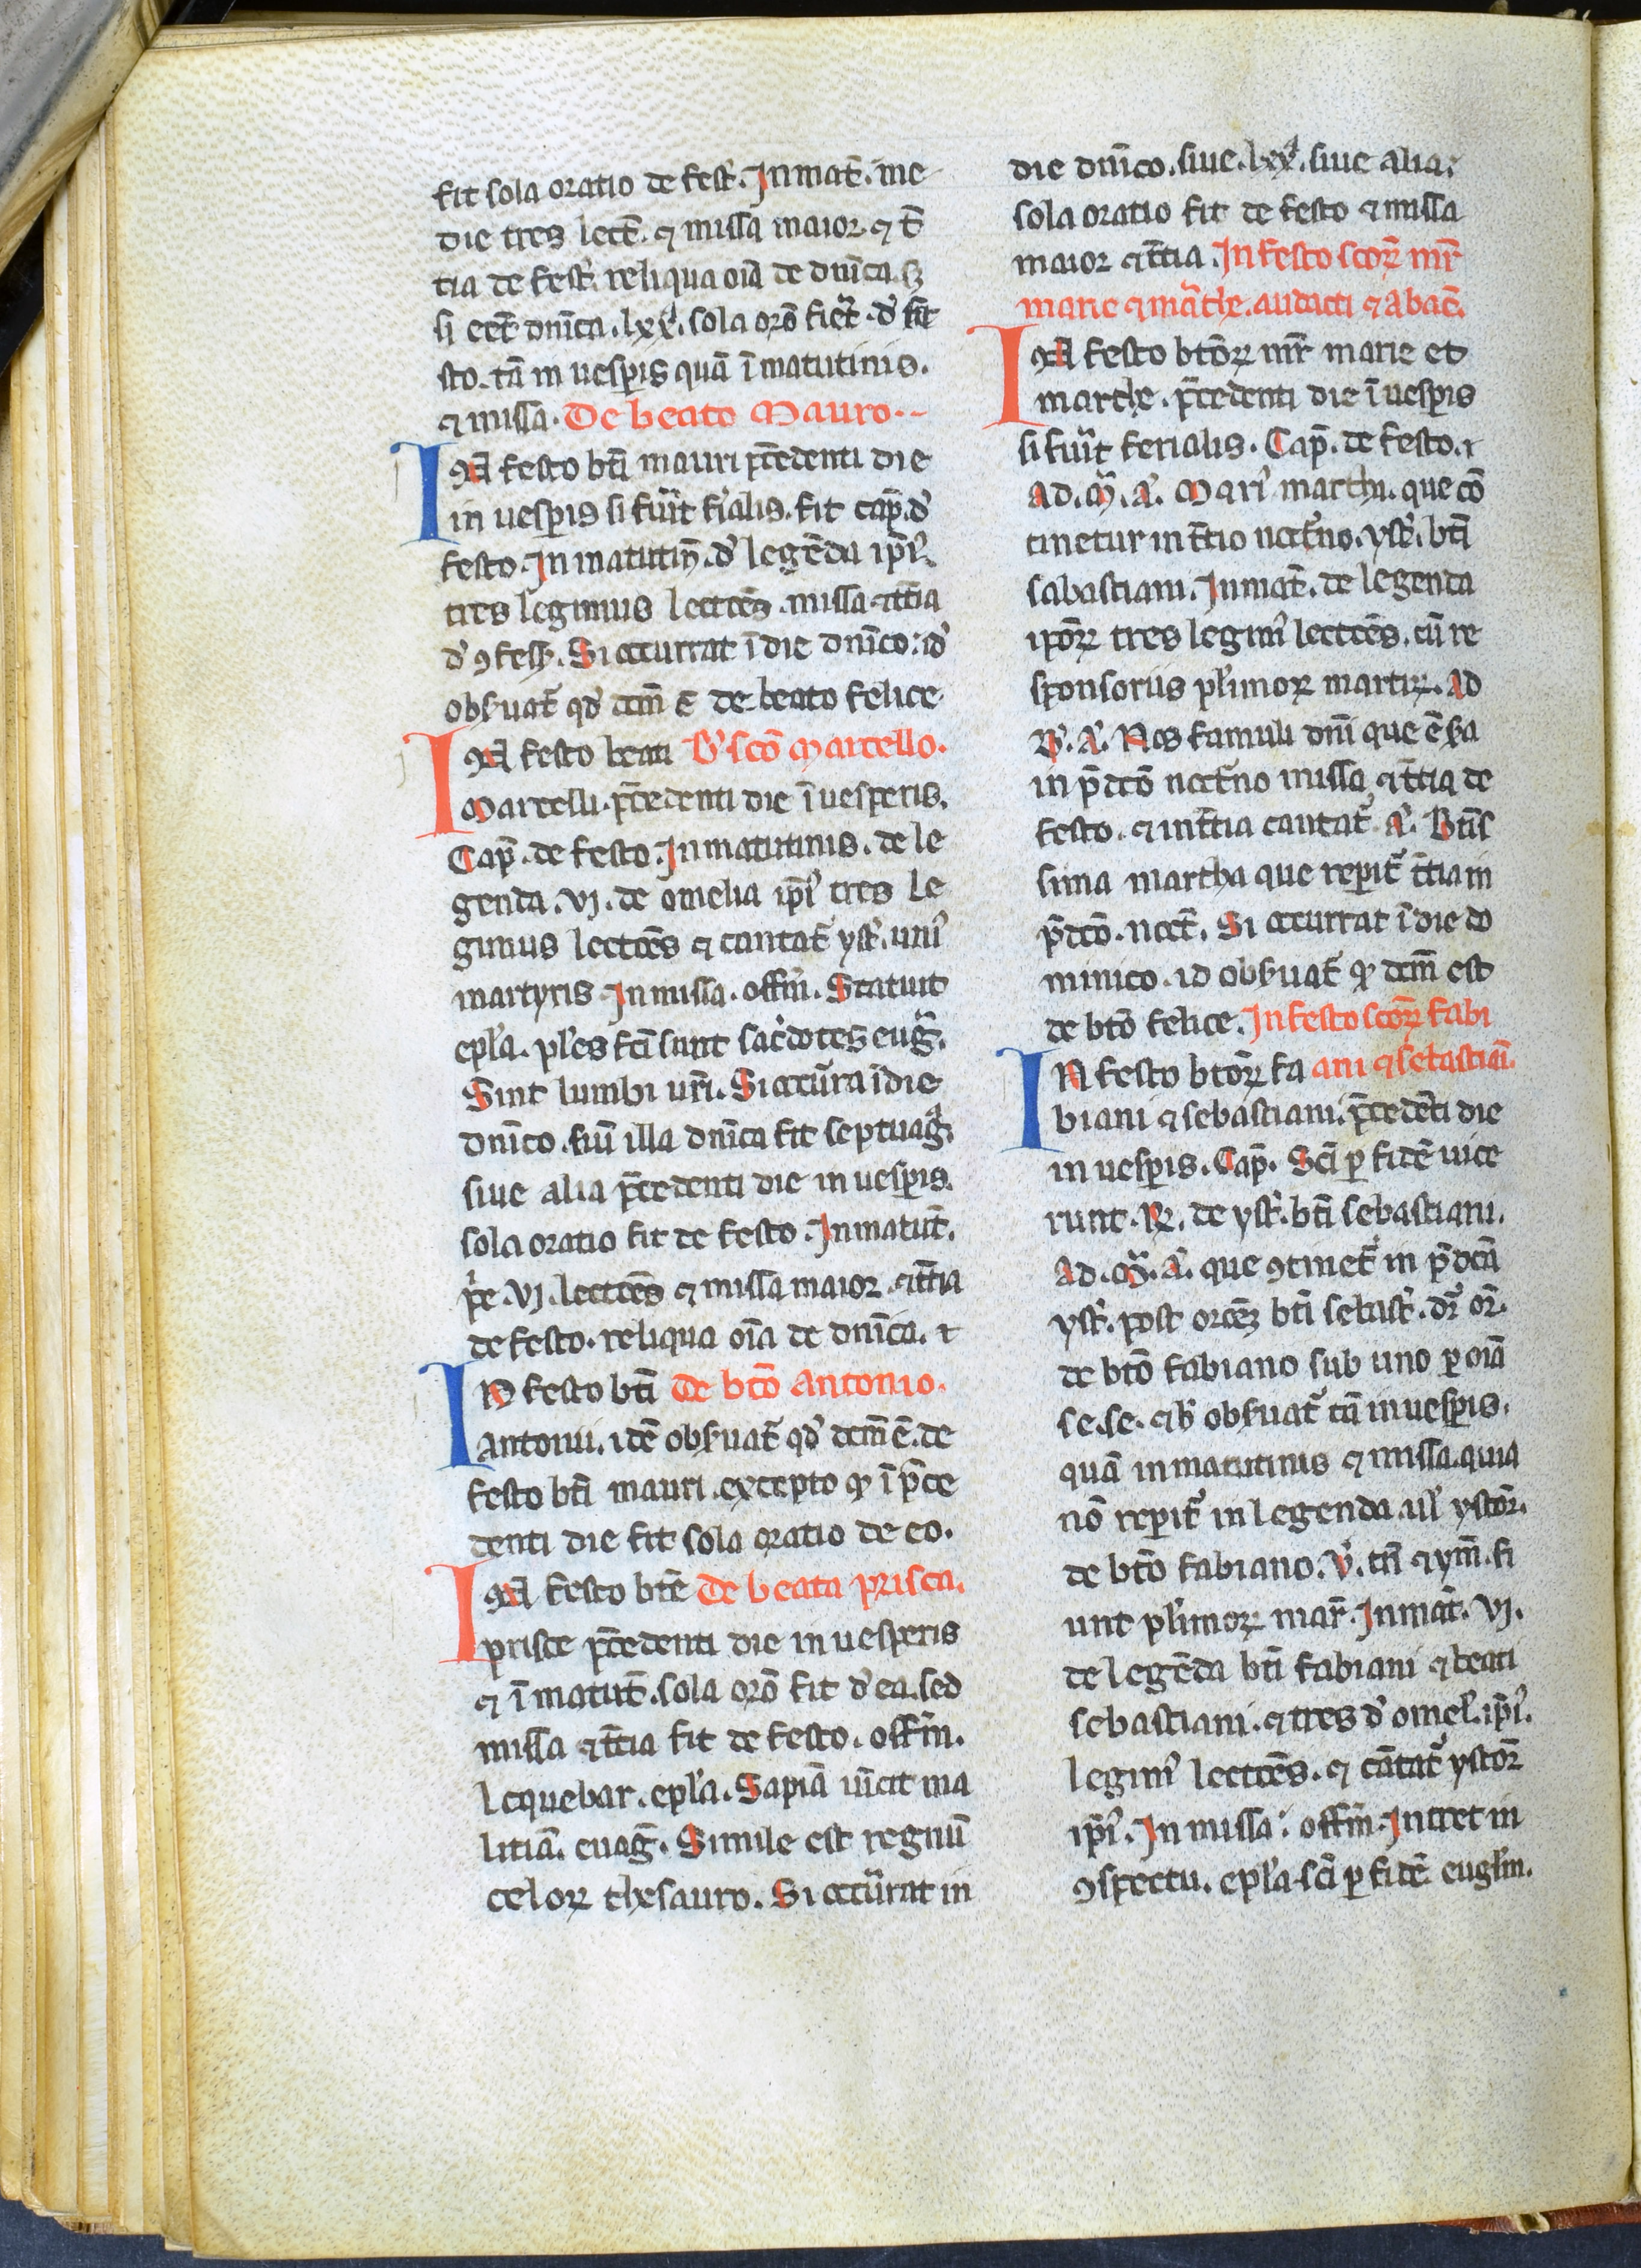 fit sola oratio de fest̄. In mat̄. me
die tres lect̄. ⁊ missa maior. ⁊ t̄
tia de fest̄. reliqua oīa de dnīca. sꝫ
si eēt dnīca .lxx͛. sola orō fiet̄. d̾ fe
sto. tā in uesꝑis quā ī matutinis.
⁊ missa. De beato Mauro.
IN festo btī mauri p̄cedenti die
in uesꝑis si fuīt fialis. fit cap̄. d̾
festo. In matutiɳ̄. d̾ legēda ip̄i᷒.
tres legimus lectcēs. missa ⁊ t̄tia
d̾ ꝯ fesſ. Si occurrat ī die dnīco: id̾
obẜuat̄ qd̾ dcm̄ ē de beato felice.
IN festo beati D̾ scō Marcello.
Marcelli. p̄cedenti die ī uesperis.
Cap̄. de festo. In matutinis. de le
genda. vj. de omelia ip̄i᷒ tres le
gimus lectcēs ⁊ cantat̄ yst̄. uni᷒
martyris. In missa. offm̄. Statuit
epl̄a. pl̄es fcī sunt sac̾dotes eug̃.
Sint lumbi ur̄i. Si occur̄a ī die
dnīco. siū illa dnīca fit septuag̃.
siue alia p̄cedenti die in uesꝑis.
sola oratio fit de festo. In matut̄.
p̾e .vj. lectcēs ⁊ missa maior. ⁊ t̄tia
de festo. reliqua oīa de dnīca. ⁊
IN festo btī De btō Antonio.
antonii. idē obẜuat̄ qd̾ dcm̄ ē. de
festo btī mauri. excepto ꝙ ī p̄ce
denti die fit sola oratio de eo.
IN festo btē De beata prisca.
prisce p̄cedenti die in uesperis
⁊ ī matut̄. sola orō fit d̾ ea. sed
missa ⁊ t̄tia fit de festo. offm̄.
Loquebar. epl̄a. Sapiā uīcit ma
litiā. euag̃. Simile est regnū
celoꝝ thesauro. Si occur̄rat in
die dnīco. siue .lxx͛. siue alia.
sola oratio fit de festo ⁊ missa
maior ⁊ t̄tia. In festo scōꝝ mr̄
marie ⁊ māthe. audacti ⁊ abac̄.
IN festo btōꝝ mr̄ marie et
marthe. p̄cedenti die ī uesꝑis
si fuīt ferialis. Cap̄. de festo. ⁊
Ad. M̄. A᷒. Mari᷒ marthā. que cō
tinetur in t̄tio noct̄no. yst̄. btī
sabastiani. In mat̄. de legenda
ipōꝝ tres legim᷒ lectcēs. cū re
sponsoriis pl̄imoꝝ martirꝝ. Ad
B̾. A᷒. Nos famuli dnī que ē ẜa
in p̄dcō noct̄no missa ⁊ t̄tia de
festo. ⁊ in t̄tia cantat̄ A᷒. Btīs
sima martha que reꝑit̄ t̄tia in
p̄dcō. noct̄. Si occurrat ī die do
minico. id obẜuat̄ ꝙ dcm̄ est
de btō felice. In festo scōꝝ fabi
IN festo btōꝝ fa ani ⁊ sebastiāi.
biani ⁊ sebastiani. p̄cedēti die
in uesꝑis. Cap̄. Scī ꝑ fidē uice
runt. R̷. de yst̄. btī sebastiani.
Ad. M̄. A᷒. que ꝯtinet̄ in p̄dcā
yst̄. post orōeꝫ btī sebast̄. dr̄ or̄.
de btō fabiano sub uno ꝑ oīa
se. se. ⁊ h̾ obẜuat̄ tā in uesꝑis.
quā in matutinis ⁊ missa. quia
nō reꝑit̄ in legenda. ul̄ ystor̄.
de btō fabiano. V̾. tn̄ ⁊ ym̄. fi
unt pl̄imoꝝ mar̄. In mat̄. vj.
de legēda btī fabiani ⁊ beati
sebastiani. ⁊ tres d̾ omel̄. ip̄i᷒.
legim᷒ lectcēs. ⁊ cātat̄ ystor̄
ip̄i᷒. In missa: offm̄. Intret in
ꝯspectu. epl̄a. scī ꝑ fidē. eugl̄m.